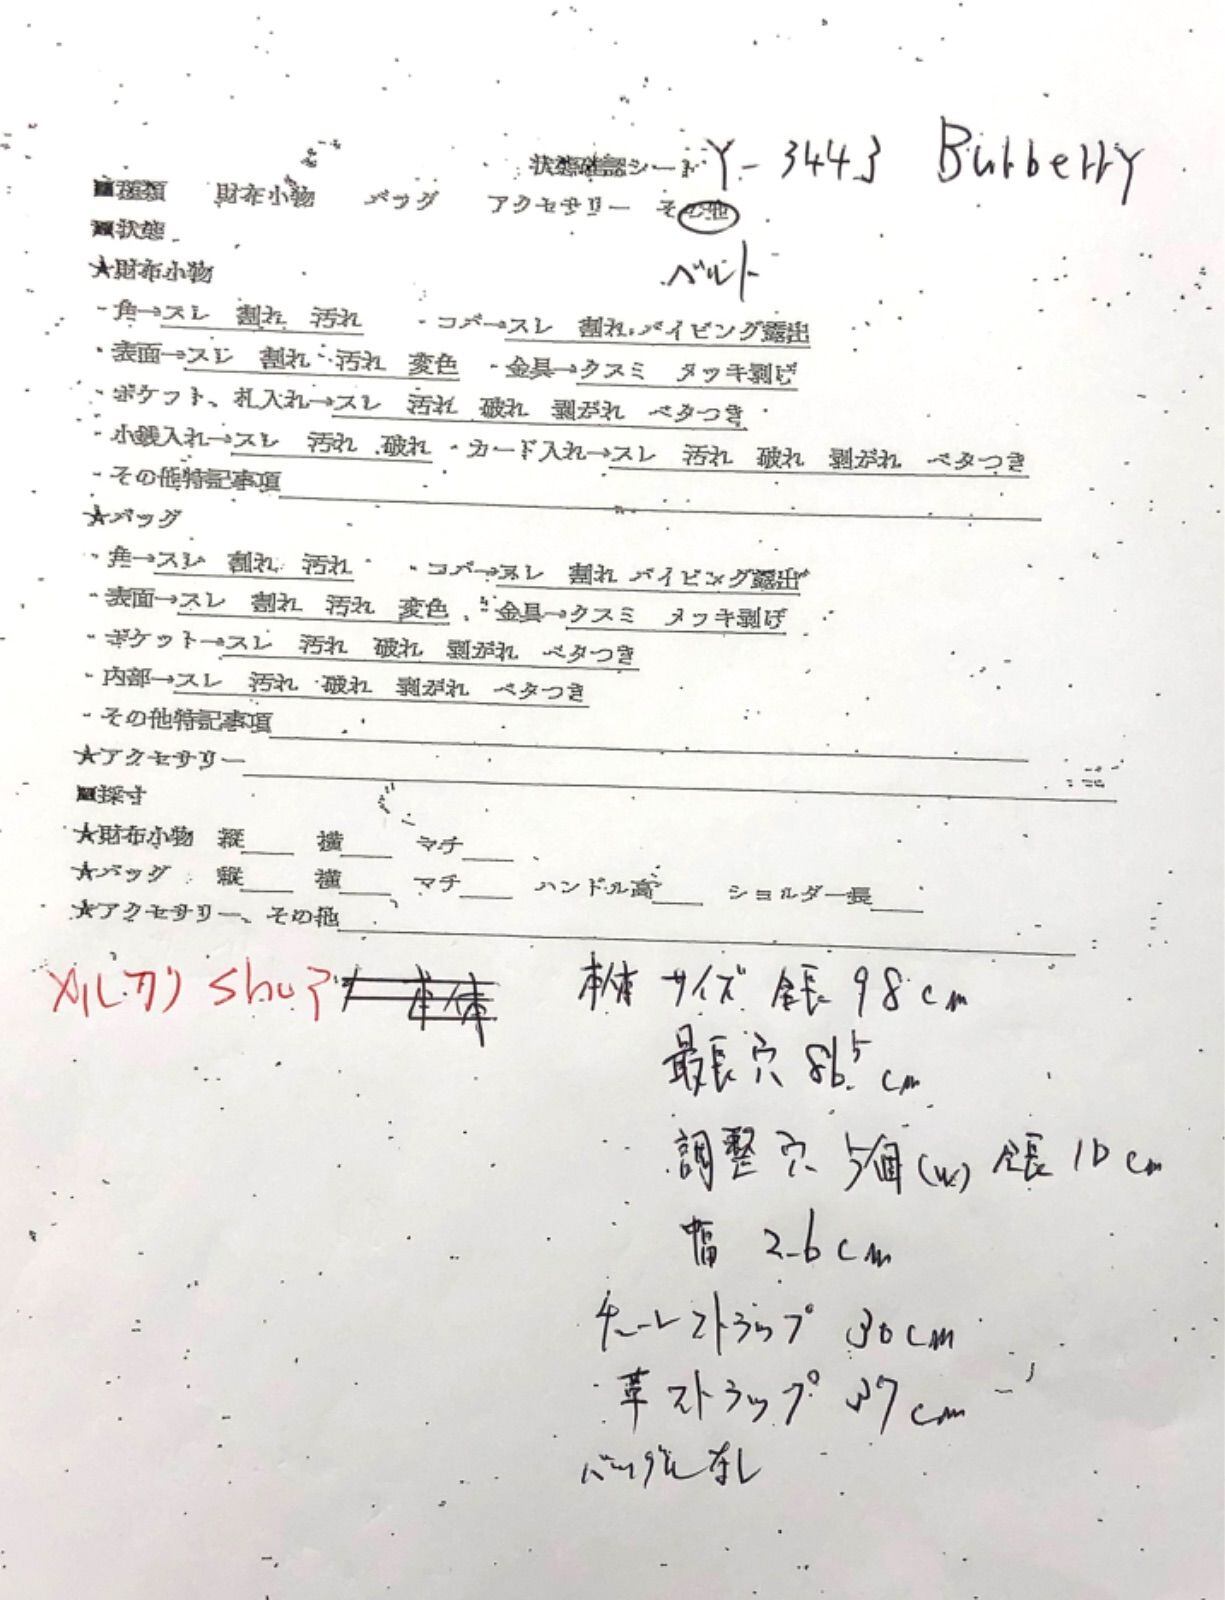 状態確認シート Y-3443 Burberry
■種類 財布小物 バッグ アクセサリー その他
■状態 ベルト
★財布小物
・角→スレ 割れ 汚れ ・コバ→スレ 割れ パイピング露出
・表面→スレ 割れ 汚れ 変色 ・金具→クスミ メッキ剥げ
・ポケット、札入れ→スレ 汚れ 破れ 剥がれ ベタつき
・小銭入れ→スレ 汚れ 破れ ・カード入れ→スレ 汚れ 破れ 剥がれ ベタつき
・その他特記事項
★バッグ
・角→スレ 割れ 汚れ ・コバ→スレ 割れ パイピング露出
・表面→スレ 割れ 汚れ 変色 ・金具→クスミ メッキ剥げ
・ポケット→スレ 汚れ 破れ 剥がれ ベタつき
・内部→スレ 汚れ 破れ 剥がれ ベタつき
・その他特記事項
★アクセサリー
■採寸
★財布小物 縦 横 マチ
★バッグ 縦 横 マチ ハンドル高 ショルダー長
★アクセサリー、その他
メルカリ shop 本体 本体サイズ 全長 98cm
最長穴 86.5cm
調整穴 5個 全長 10cm
幅 2.6cm
ストラップ 30cm
革ストラップ 37cm
バックルなし